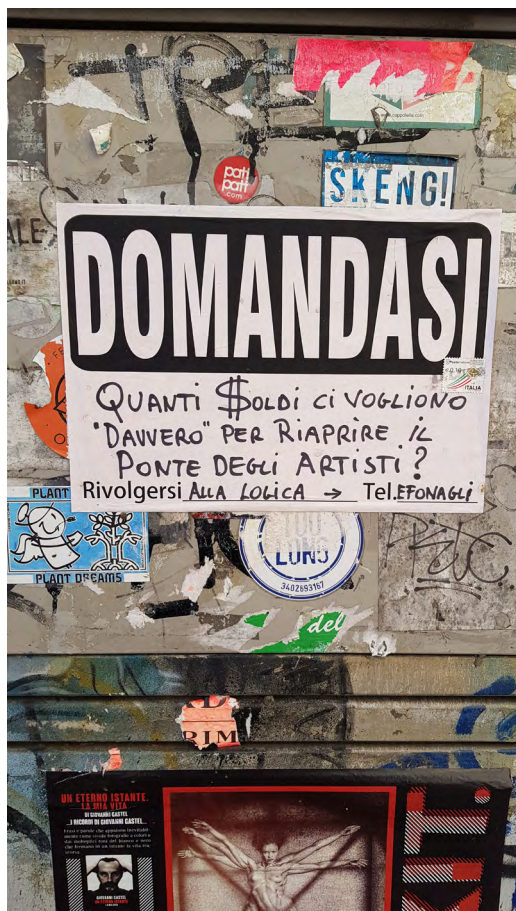 www.cappottella.com
pati
pati
.com
SKENG!
ALE
DOMANDASI
ITALIA
QUANTI $OLDI CI VOGLIONO
"DAVVERO" PER RIAPRIRE IL
PONTE DEGLI ARTISTI?
Rivolgersi ALLA LOGICA → Tel.EFONAGLI
PLANT
PLANT DREAMS
LONS
3402693167
del
RIM
UN ETERNO ISTANTE.
LA MIA VITA
DI GIOVANNI GASTEL
...I RICORDI DI GIOVANNI GASTEL...
GIOVANNI GASTEL
UN ETERNO ISTANTE